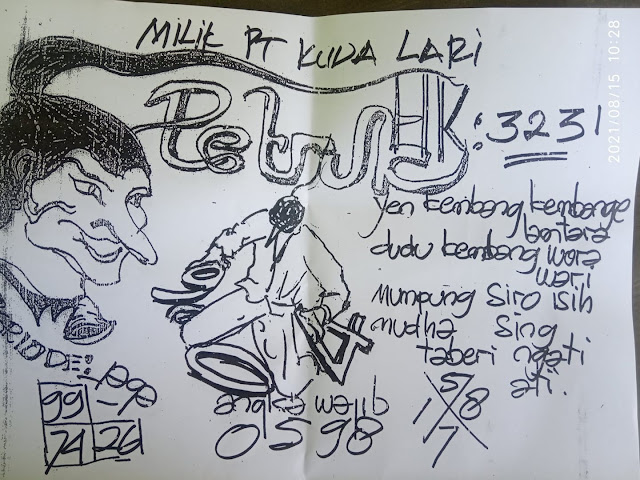 MILIK PT KUDA LARI
Petruk: 3231
yen kembang kembange
lantara
dudu kembang wora
wari
Mumpung Siro isih
mudha sing
taberi ngati
ati.
RIODE: PP
99
74 26
angka wajib
0598
5
1 8
7
2021/08/15 10:28